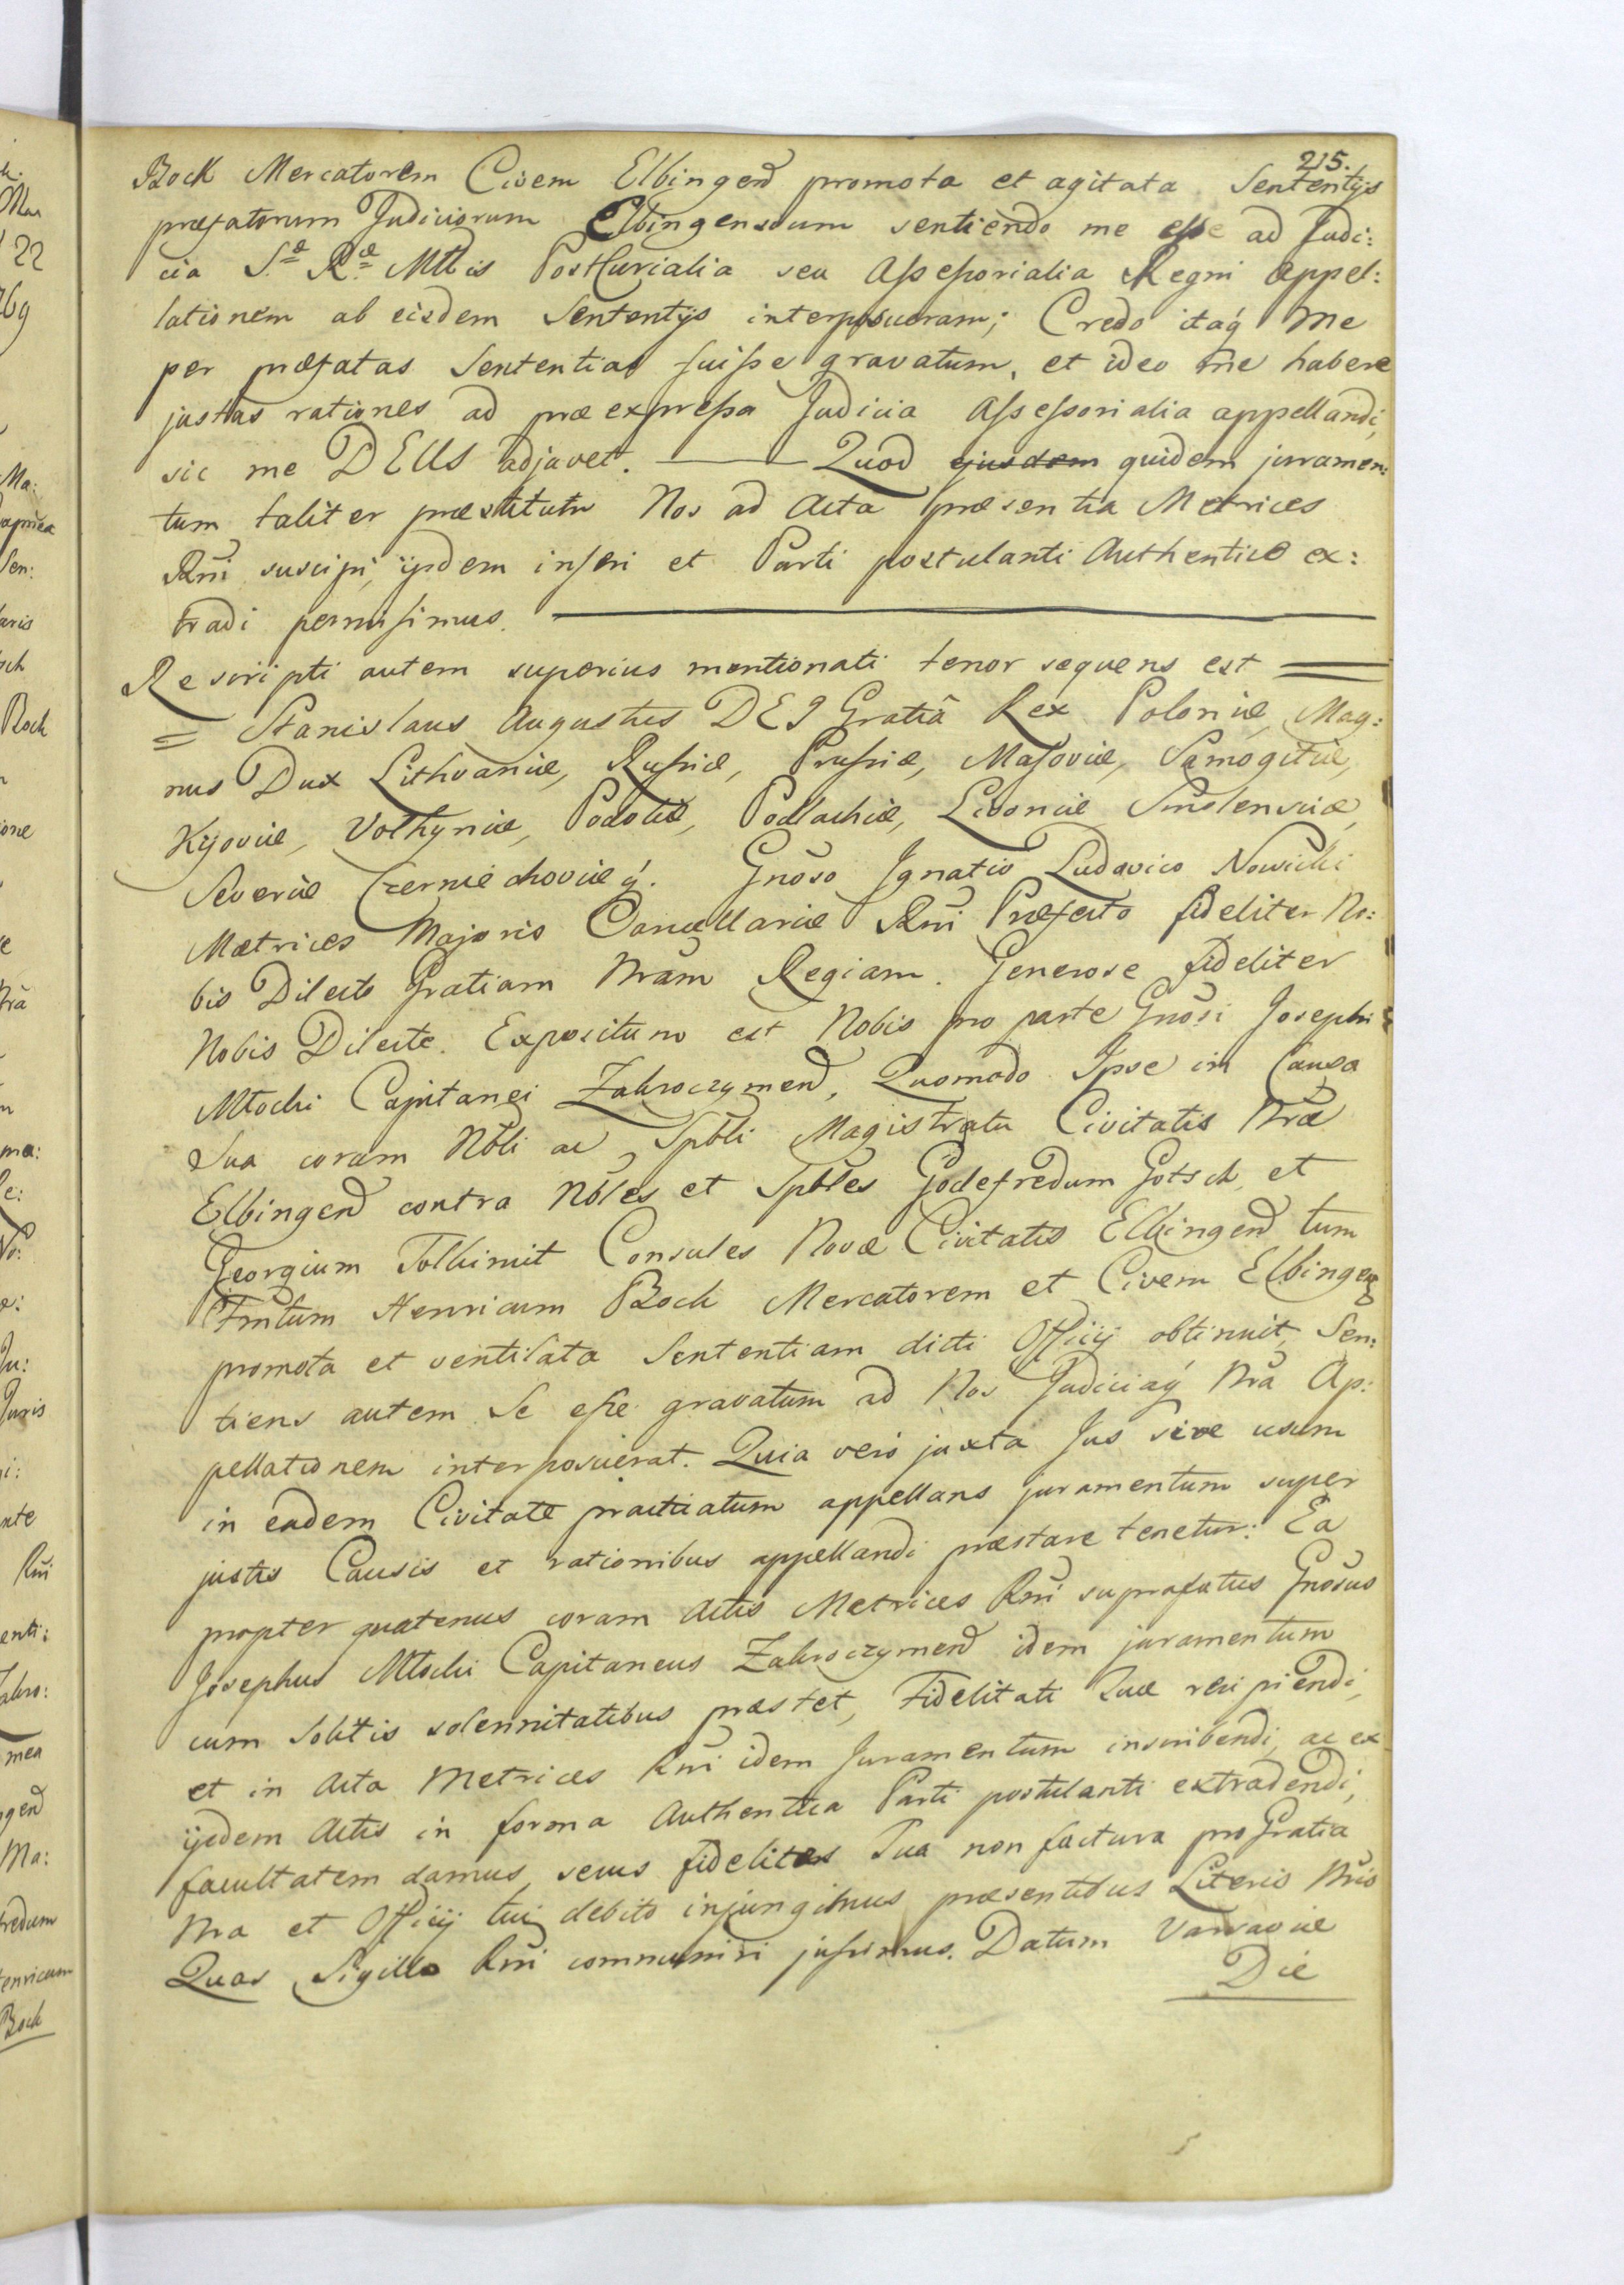 215.
Bock Mercatorem Civem Elbingen promota et agitata Sententijs
præfatorum Judiciorum Elbingensium sentiendo me esse ad Judi:
cia S.æ R.æ Mttis PostCurialia seu Assessorialia Regni appel:
lationem ab eisdem Sententijs interposueram; Credo itaq́ me
per præfatas Sententias fuisse gravatum, et ideo me habere
justas rationes ad præexpressa Judicia Assessorialia appellandi,
sic me DEUS adjuvet. ——— Quod ejusdem quidem juramen:
tum taliter præstitutum Nos ad Acta præsentia Metrices
Rni suscipi, ijsdem inseri et Parti postulanti Authentice ex:
tradi permisimus. ———
Rescripti autem superius mentionati tenor sequens est =
= Stanislaus Augustus DEI Gratiâ Rex Poloniæ, Mag:
nus Dux Lithvaniæ, Russiæ, Prussiæ, Masoviæ, Samogitiæ,
Kijoviæ, Volhyniæ, Podoliæ, Podlachiæ, Livoniæ Smolensciæ,
Severiæ Czerniechoviæq́. Gnoso Ignatio Ludovico Nowicki
Metrices Majoris Cancellariæ Rni Præfecto fideliter No:
bis Dilecto Gratiam Nram Regiam. Generose fideliter
Nobis Dilecte. Expositum est Nobis pro parte Gnosi Josephi
Młocki Capitanei Zakroczymen, Quomodo Ipse in Causa
Sua coram Nbli ac Spbli Magistratu Civitatis Nræ
Elbingen contra Nbles et Spbles Godefredum Gotsch, et
Georgium Tolkimit Consules Novæ Civitatis Elbingen tum
Henricum Bock Mercatorem et Civem Elbingen
promota et ventilata Sententiam dicti Officij obtinuit, Sen:
tiens autem Se esse gravatum ad Nos Judiciaq́ Nra Ap:
pellationem interposuerat. Quia vero juxta Jus sive usum
in eadem Civitate practicatum appellans juramentum super
justis Causis et rationibus appellandi præstare tenetur: Ea
propter quatenus coram Actis Metrices Rni suprafatus Gnosus
Josephus Młocki Capitaneus Zakroczymen idem juramentum
cum Solitis solennitatibus præstet, Fidelitati Tuæ recipiendi,
et in Acta Metrices Rni idem Juramentum inscribendi, ac ex
ijsdem Actis in forma Authentica Parti postulanti extradendi,
facultatem damus, secus fidelitas Tua non factura pro Gratia
Nra et Officij tui debito injungimus præsentibus Literis Nris
Quas Sigillo Rni communiri jussimus. Datum Varsaviæ
Die